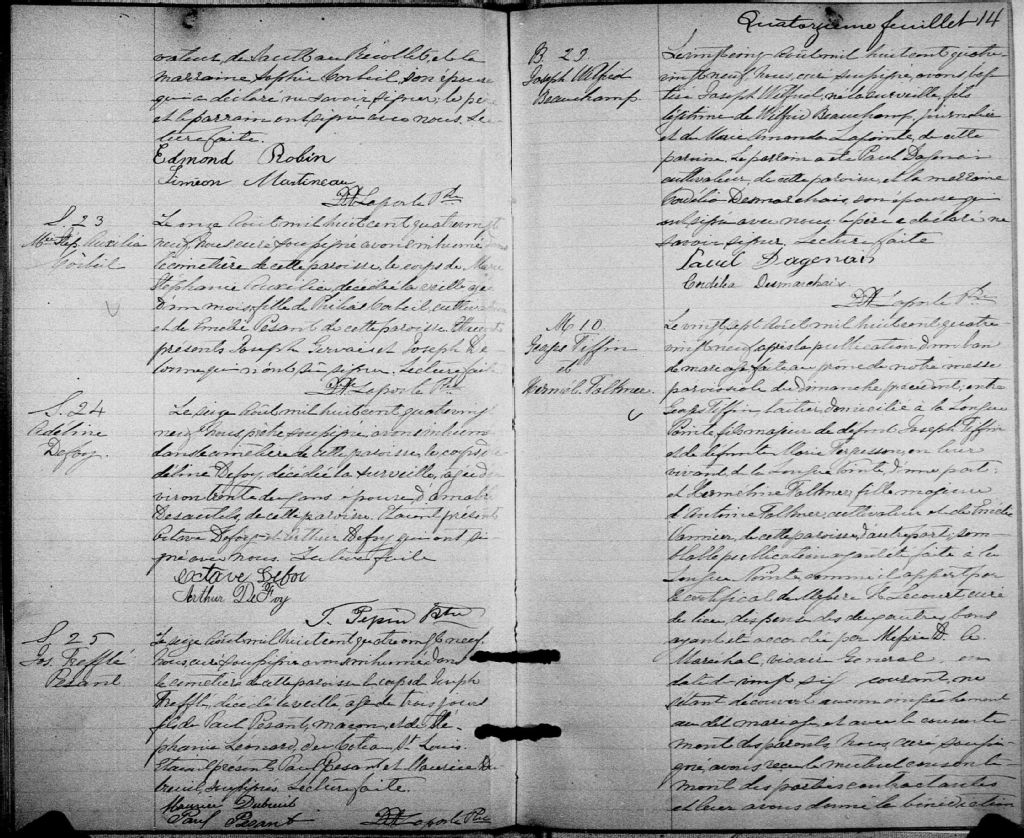 vateur, de Sault au Récollet, et la
marraine Sophie Corbeil, son épouse
qui a déclaré ne savoir signer; le père
et le parrain ont signé avec nous. Lec
ture faite.
Edmond Robin
Simeon Martineau
Laporte Ptre
S. 23
Mie Stép. Auxilia
Corbeil
Le onze Août mil huit cent quatre vingt
neuf, Nous curé soussigné avons inhumé dans
le cimetière de cette paroisse, le corps de Marie
Stéphanie Auxilia, décédée la veille, agée
d'un mois, fille de Philias Corbeil, cultivateur
et de Emelie Pesant de cette paroisse. Etaient
présents Joseph Gervais et Joseph
qui n'ont su signer. Lecture faite
Laporte Ptre
S. 24
Adeline
Defoy.
Le seize Août mil huit cent quatre vingt
neuf, Nous prêtre soussigné, avons inhumé
dans le cimetière de cette paroisse, le corps d'A
déline Defoy, décédée la surveille, agée d'en
viron trente deux ans épouse d'Amable
Desautels, de cette paroisse. Etaient présents
Octave Defoy et Arthur Defoy qui ont si
gné avec nous. Lecture faite
Octave Defoy
Arthur DeFoy
T. Pepin Ptre
S. 25
Jos. Treffle
Pesant
Le seize Août mil huit cent quatre vingt neuf
Nous curé soussigné avons inhumé dans
le cimetière de cette paroisse le corps de Joseph
Treffle, décédé la veille, agé de trois jours
fils de Paul Pesant, maçon, et de Sté
phanie Leonard, du Coteau St Louis.
Etaient présents Paul Pesant et Maurice Du
breuil, soussignés. Lecture faite.
Maurice Dubreuil
Paul Pesant Laporte Ptre
Quatorzieme feuillet 14
B. 29
Joseph Wilfrid
Beauchamp.
Le vingt cinq Août mil huit cent quatre
vingt neuf, Nous, curé soussigné, avons bap
tisé Joseph Wilfrid, né la surveille, fils
légitime de Wilfrid Beauchamp, journalier
et de Marie Amanda Lapointe, de cette
paroisse. Le parrain a été Paul Dagenais
cultivateur, de cette paroisse, et la marraine
Cordélia Desmarchais, son épouse qui
ont signé avec nous; le père a déclaré ne
savoir signer. Lecture faite
Paul Dagenais
Cordélia Desmarchais
Laporte Ptre
M 10.
Georges Tiffin
et
Hermél. Falkner.
Le vingt sept Août mil huit cent quatre
vingt neuf, après la publication d'un ban
de mariage faite au prone de notre messe
paroissiale du dimanche précédent, entre
Georges Tiffin, laitier, domicilié à la Longue
Pointe, fils majeur de défunt Joseph Tiffin
et de défunte Marie Fergusson, en leur
vivant de la Longue Pointe, d'une part;
et Herméline Falkner, fille majeure
d'Antoine Falkner, cultivateur et de Emélie
Vannier, de cette paroisse, d'autre part; sem
blable publication ayant été faite à la
Longue Pointe comme il appert par
le certificat de Messire Lecourt, curé
du lieu, dispense des deux autres bans
ayant été accordée par Messire D. Le
Maréchal, vicaire Général, en
date du vingt six courant, ne
s'étant découvert aucun empêchement
au dit mariage, et avec le consente
ment des parents, Nous, curé soussi
gné, avons reçu le mutuel consente
ment des parties contractantes
et leur avons donné la bénédiction